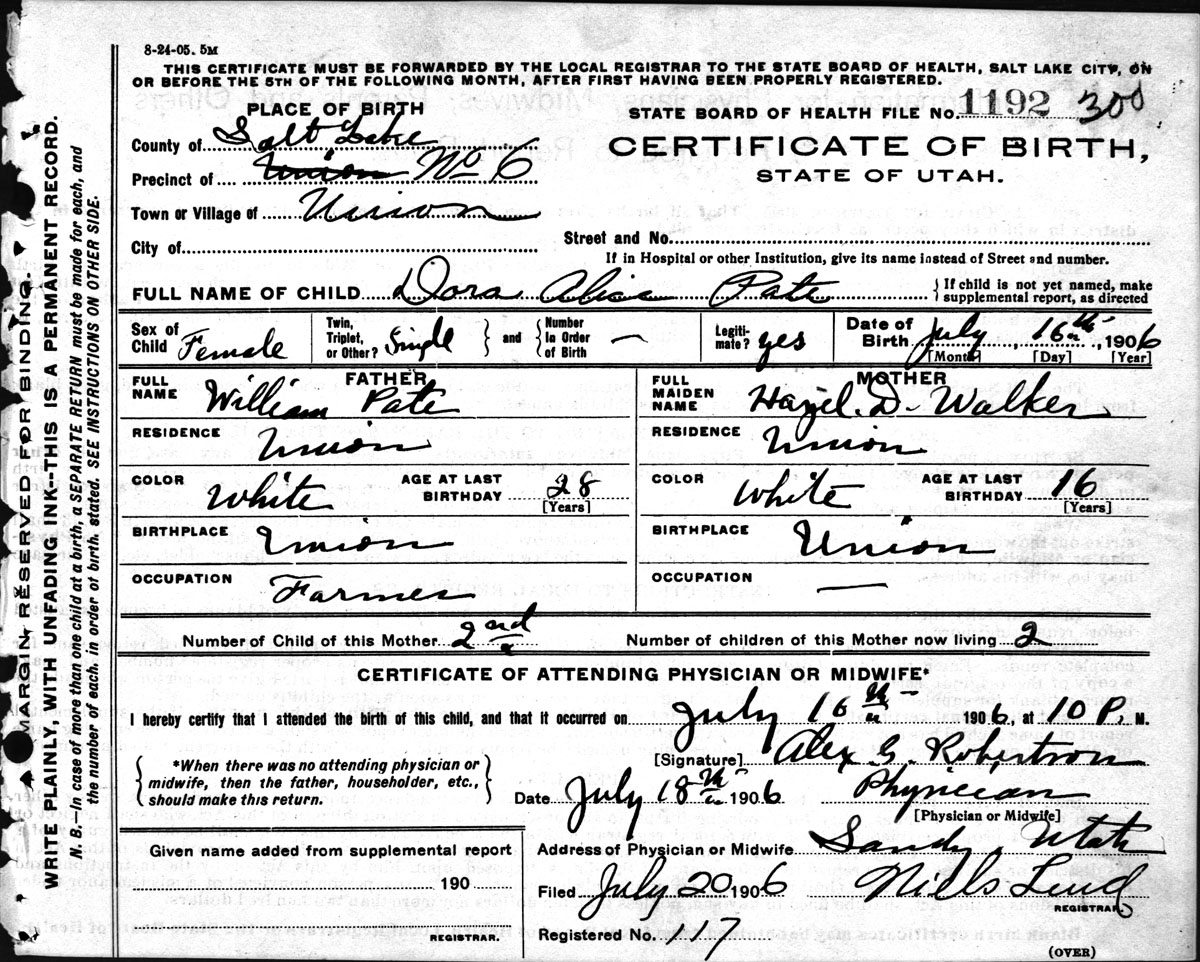 8-24-05. 5M
THIS CERTIFICATE MUST BE FORWARDED BY THE LOCAL REGISTRAR TO THE STATE BOARD OF HEALTH, SALT LAKE CITY, ON
OR BEFORE THE 5TH OF THE FOLLOWING MONTH, AFTER FIRST HAVING BEEN PROPERLY REGISTERED.
PLACE OF BIRTH
STATE BOARD OF HEALTH FILE NO. 1192 300
County of Salt Lake
CERTIFICATE OF BIRTH,
STATE OF UTAH.
Precinct of Union No 6
Town or Village of Union
City of
Street and No.
If in Hospital or other Institution, give its name instead of Street and number.
FULL NAME OF CHILD Dora Alice Pate
{If child is not yet named, make
supplemental report, as directed
Sex of Child Female
Twin, Triplet, or Other? Single } and { Number In Order of Birth —
Legiti-mate? yes
Date of Birth July 16th, 1906
[Month] [Day] [Year]
FATHER
FULL NAME William Pate
RESIDENCE Union
COLOR White AGE AT LAST BIRTHDAY 28
[Years]
BIRTHPLACE Union
OCCUPATION Farmer
MOTHER
FULL MAIDEN NAME Hazel. D. Walker
RESIDENCE Union
COLOR White AGE AT LAST BIRTHDAY 16
[Years]
BIRTHPLACE Union
OCCUPATION —
Number of Child of this Mother 2nd
Number of children of this Mother now living 2
CERTIFICATE OF ATTENDING PHYSICIAN OR MIDWIFE*
I hereby certify that I attended the birth of this child, and that it occurred on July 16th 1906, at 10 P. M.
{ *When there was no attending physician or
midwife, then the father, householder, etc.,
should make this return. }
[Signature] Alex G. Robertson
Date July 18th 1906 Physician
[Physician or Midwife]
Given name added from supplemental report
190
REGISTRAR.
Address of Physician or Midwife Sandy Utah
Filed July 20 1906 Niels Lind
REGISTRAR.
Registered No. 117
(OVER)
MARGIN RESERVED FOR BINDING
WRITE PLAINLY, WITH UNFADING INK--THIS IS A PERMANENT RECORD.
N. B.--In case of more than one child at a birth, a SEPARATE RETURN must be made for each, and
the number of each, in order of birth, stated. SEE INSTRUCTIONS ON OTHER SIDE.